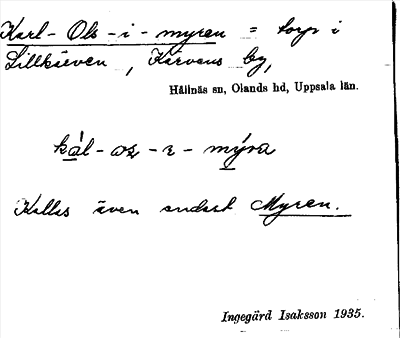 Karl-Ols-i-myren = torp i
Lillkärven, Kärvens by,
Hållnäs sn, Olands hd, Uppsala län.
kàl-os-i-my̗ra
Kallas även endast Myren.
Ingegärd Isaksson 1935.